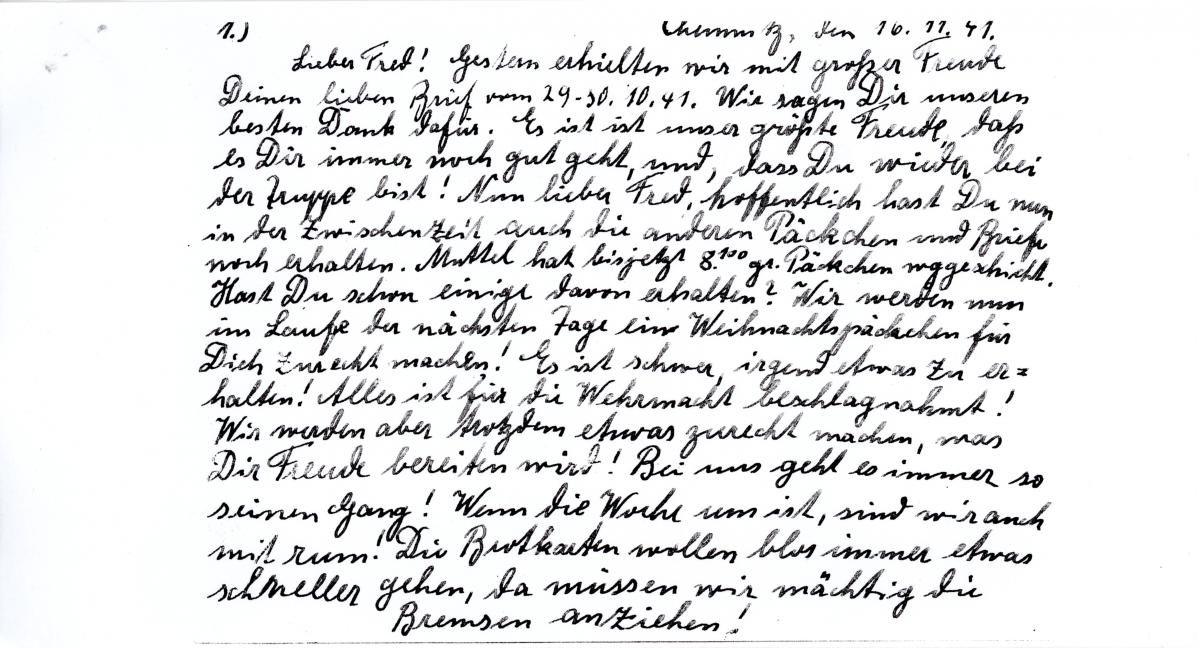 1.) Chemnitz, den 16.11.41.
Lieber Fred! Gestern erhielten wir mit großer Freude
Deinen lieben Brief vom 29-30.10.41. Wir sagen Dir unseren
besten Dank dafür. Es ist ist unser größte Freude, daß
es Dir immer noch gut geht, und, dass Du wieder bei
der Truppe bist! Nun lieber Fred, hoffentlich hast Du nun
in der Zwischenzeit auch die anderen Päckchen und Briefe
noch erhalten. Muttel hat bis jetzt 8.100 gr. Päckchen weggeschickt.
Hast Du schon einige davon erhalten? Wir werden nun
im Laufe der nächsten Tage ein Weihnachtspäckchen für
Dich zurecht machen! Es ist schwer, irgend etwas zu er=
halten! Alles ist für die Wehrmacht beschlagnahmt!
Wir werden aber trotzdem etwas zurecht machen, was
Dir Freude bereiten wird! Bei uns geht es immer so
seinen Gang! Wenn die Woche um ist, sind wir auch
mit rum! Die Brotkarten wollen blos immer etwas
schneller gehen, da müssen wir mächtig die
Bremsen anziehen!